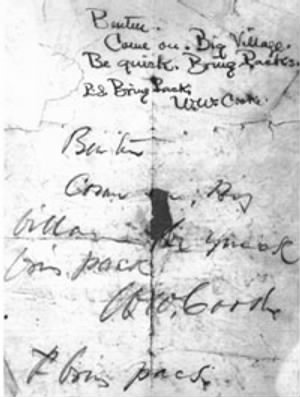 Benteen.
Come on. Big Village.
Be quick. Bring Packs.
P.S Bring Pack.
W.W. Cooke.
Benteen
Come on, Big
Village Be quick
bring pack
W.W. Cooke
P bring pacs.